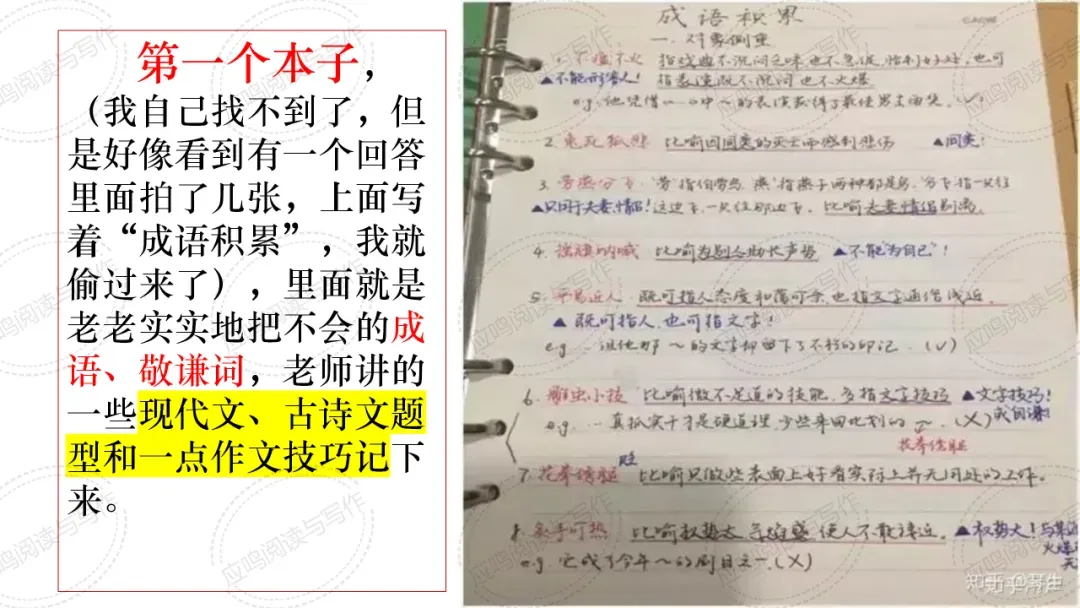 第一个本子，
（我自己找不到了，但
是好像看到有一个回答
里面拍了几张，上面写
着“成语积累”，我就
偷过来了），里面就是
老老实实地把不会的成
语、敬谦词，老师讲的
一些现代文、古诗文题
型和一点作文技巧记下
来。
成语积累
一. 对象侧重
1. 不瘟不火 指戏曲不沉闷乏味也不急促,恰到好处,也可
▲不能形容人! 指表演既不沉闷也不火爆
e.g. 他凭借……中~的表演获得了最佳男主角奖。(√)
2. 兔死狐悲 比喻因同类的灭亡而感到悲伤 ▲同类!
3. 劳燕分飞 "劳"指伯劳鸟"燕"指燕子两种都是鸟,
▲只用于夫妻,情侣! 这边飞,一只往那边飞. 比喻夫妻情侣别离.
4. 摇旗呐喊 比喻为别人助长声势 ▲不能"为自己"!
5. 平易近人 既可指人态度和蔼可亲,也指文字通俗浅近.
▲ 既可指人,也可指文字!
e.g. ~的文字却留下了不朽的印记.(√)
6. 雕虫小技 比喻微不足道的技能,多指文字技巧 ▲文字技巧!
e.g. … 真抓实干才是硬道理,少些来回比划的~.(X)
花拳绣腿
7. 花拳绣腿 比喻只做些表面上好看实际上并无用处的工作.
8. 炙手可热 比喻权势大,气焰盛,使人不敢接近. ▲权势大!
e.g. 它成了今年~的剧目之一.(X)
应鸣阅读与写作